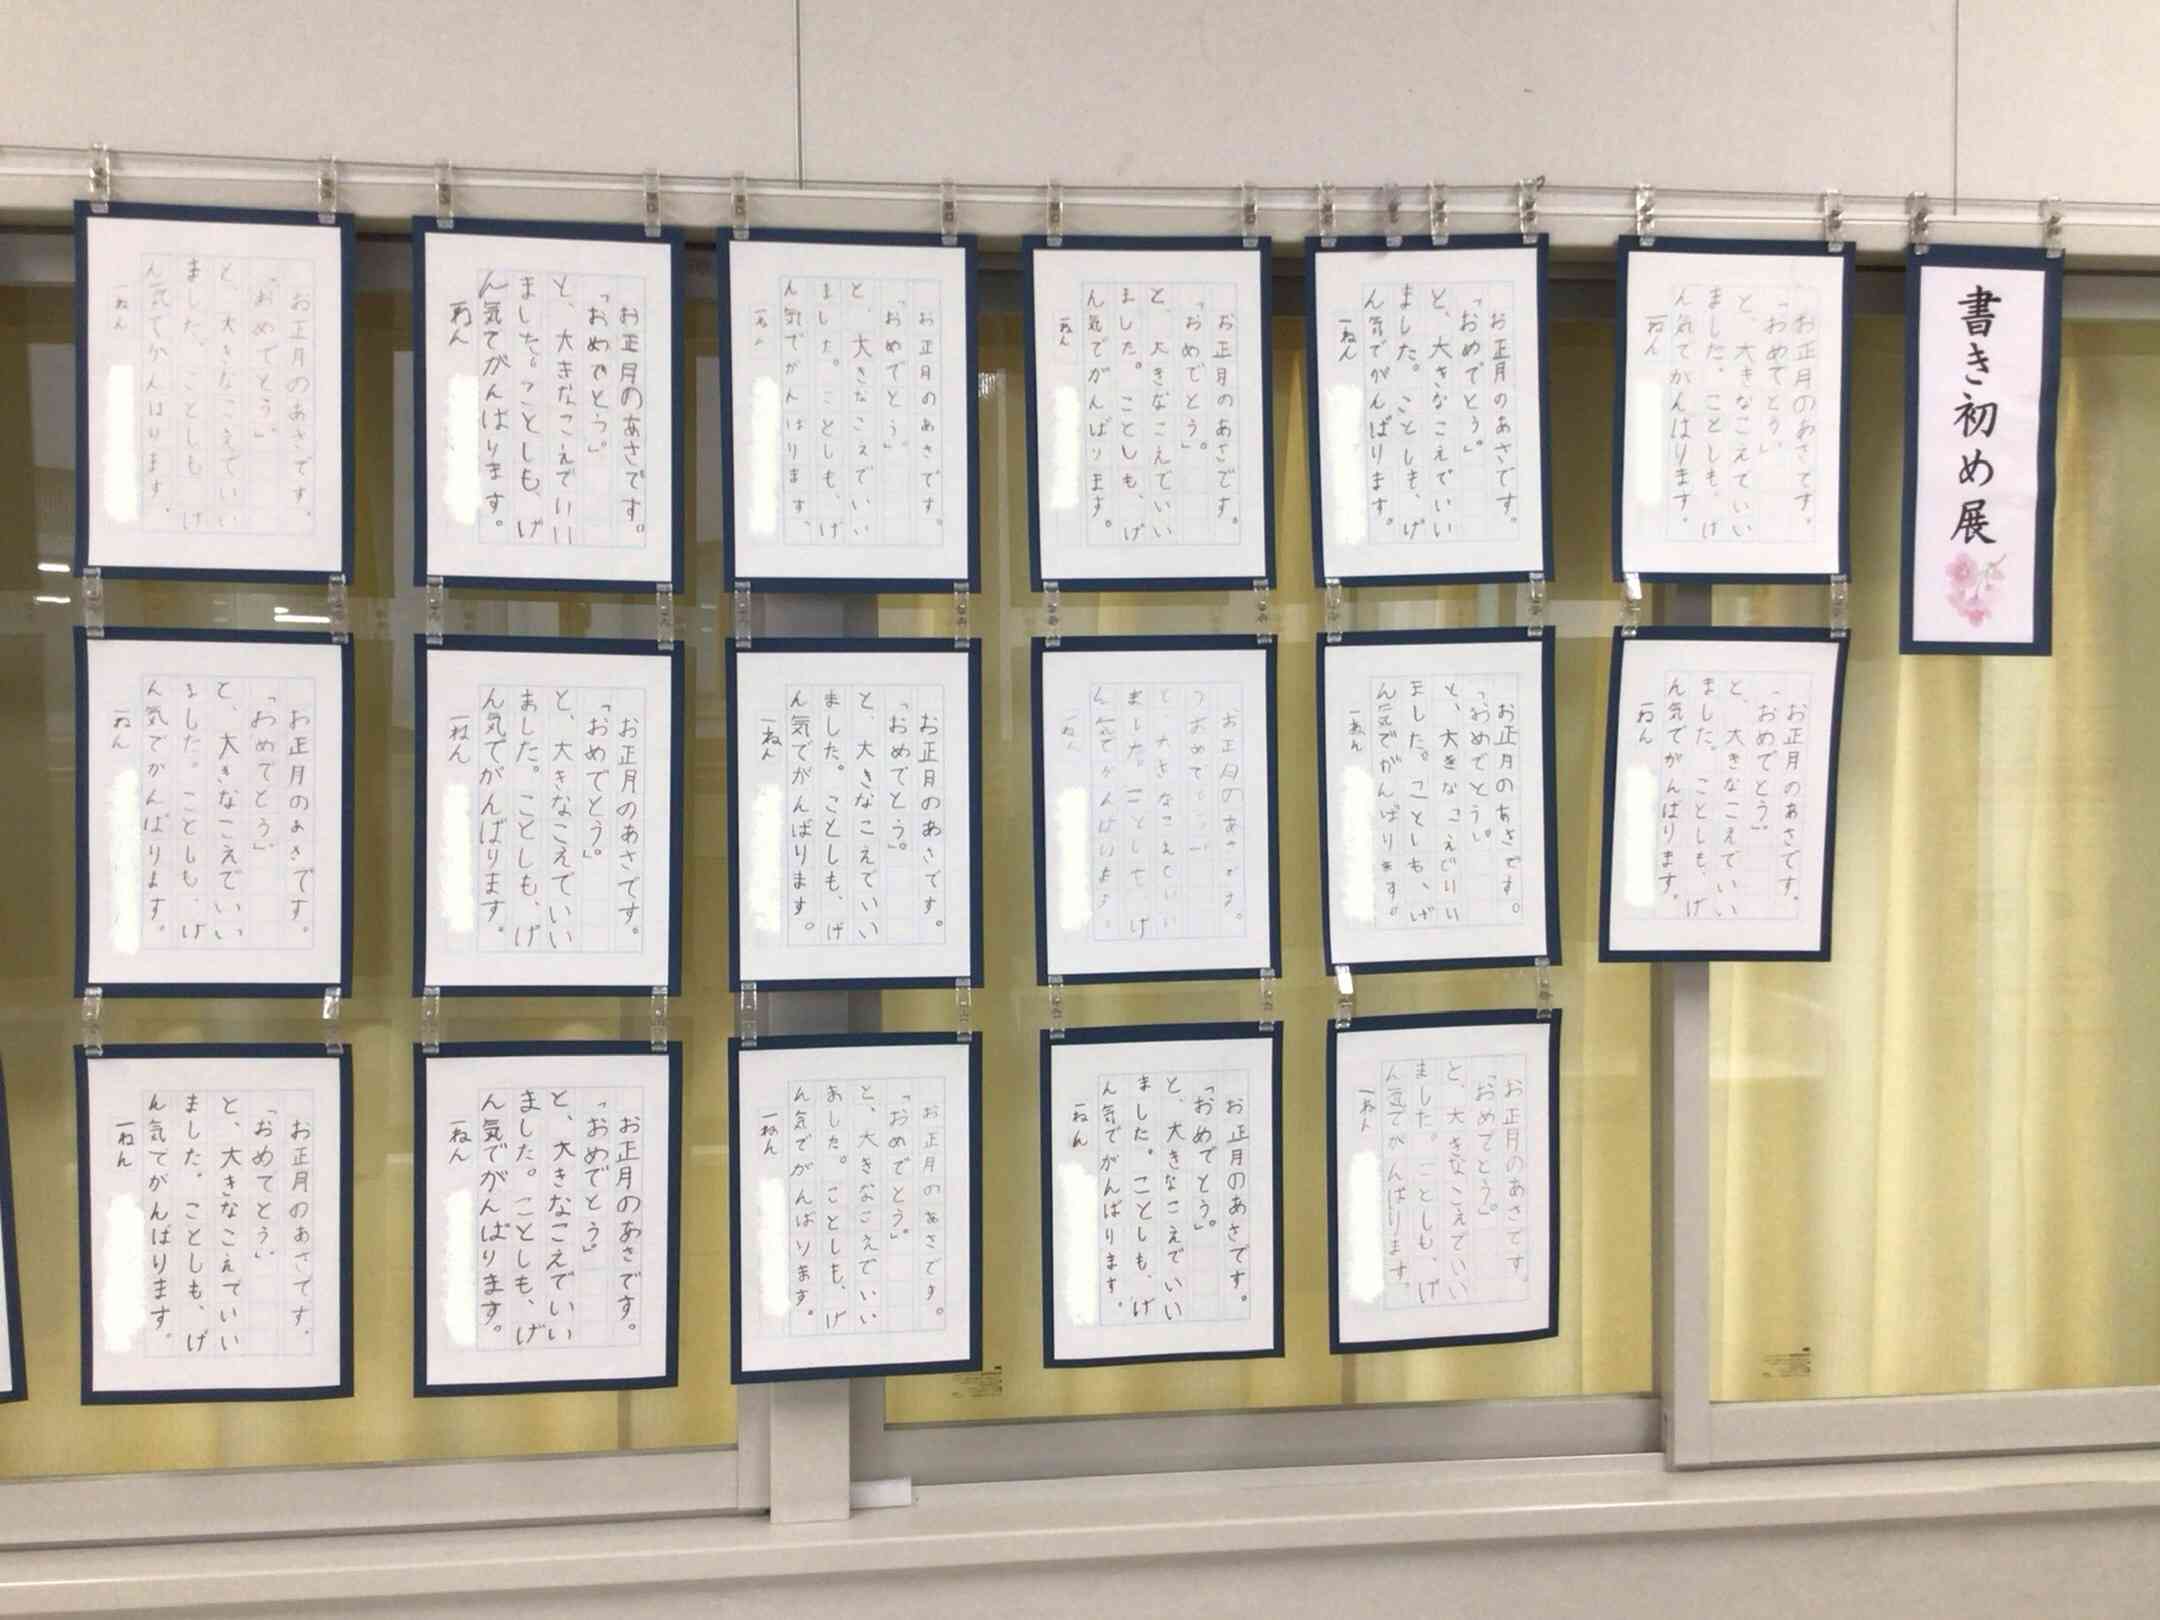 書き初め展
お正月のあさです。
「おめでとう。」
と、大きなこえでいい
ました。ことしも、げ
ん気でがんばります。
一ねん
お正月のあさです。
「おめでとう。」
と、大きなこえでいい
ました。ことしも、げ
ん気でがんばります。
一ねん
お正月のあさです。
「おめでとう。」
と、大きなこえでいい
ました。ことしも、げ
ん気でがんばります。
一ねん
お正月のあさです。
「おめでとう。」
と、大きなこえでいい
ました。ことしも、げ
ん気でがんばります。
一ねん
お正月のあさです。
「おめでとう。」
と、大きなこえでいい
ました。ことしも、げ
ん気でがんばります。
一ねん
お正月のあさです。
「おめでとう。」
と、大きなこえでいい
ました。ことしも、げ
ん気でがんばります。
一ねん
お正月のあさです。
「おめでとう。」
と、大きなこえでいい
ました。ことしも、げ
ん気でがんばります。
一ねん
お正月のあさです。
「おめでとう。」
と、大きなこえでいい
ました。ことしも、げ
ん気でがんばります。
一ねん
お正月のあさです。
「おめでとう。」
と、大きなこえでいい
ました。ことしも、げ
ん気でがんばります。
一ねん
お正月のあさです。
「おめでとう。」
と、大きなこえでいい
ました。ことしも、げ
ん気でがんばります。
一ねん
お正月のあさです。
「おめでとう。」
と、大きなこえでいい
ました。ことしも、げ
ん気でがんばります。
一ねん
お正月のあさです。
「おめでとう。」
と、大きなこえでいい
ました。ことしも、げ
ん気でがんばります。
一ねん
お正月のあさです。
「おめでとう。」
と、大きなこえでいい
ました。ことしも、げ
ん気でがんばります。
一ねん
お正月のあさです。
「おめでとう。」
と、大きなこえでいい
ました。ことしも、げ
ん気でがんばります。
一ねん
お正月のあさです。
「おめでとう。」
と、大きなこえでいい
ました。ことしも、げ
ん気でがんばります。
一ねん
お正月のあさです。
「おめでとう。」
と、大きなこえでいい
ました。ことしも、げ
ん気でがんばります。
一ねん
お正月のあさです。
「おめでとう。」
と、大きなこえでいい
ました。ことしも、げ
ん気でがんばります。
一ねん